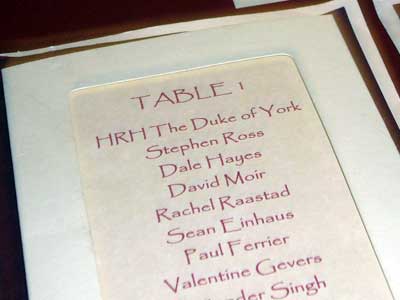 TABLE 1
HRH The Duke of York
Stephen Ross
Dale Hayes
David Moir
Rachel Raastad
Sean Einhaus
Paul Ferrier
Valentine Gevers
Singh